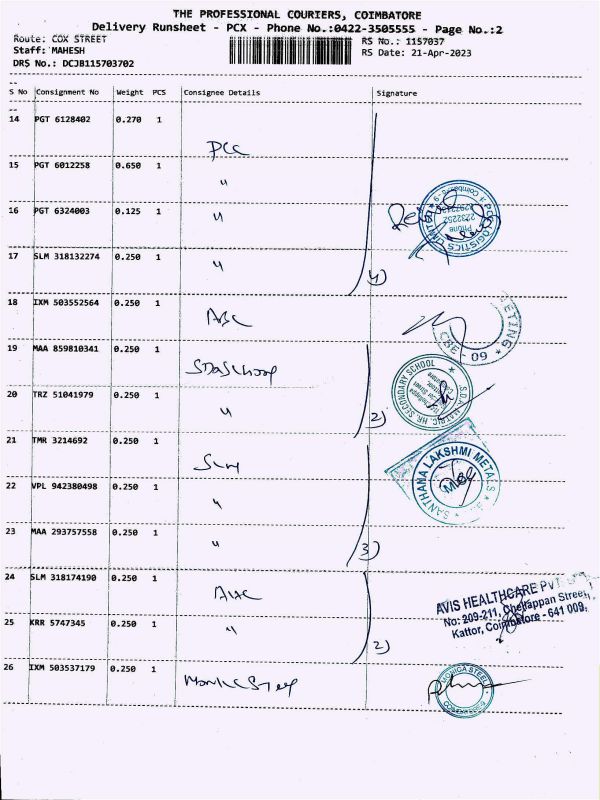 THE PROFESSIONAL COURIERS, COIMBATORE
Delivery Runsheet - PCX - Phone No.:0422-3505555 - Page No.:2
Route: COX STREET
RS No.: 1157037
Staff: MAHESH
RS Date: 21-Apr-2023
DRS No.: DCJB115703702
S No Consignment No Weight PCS Consignee Details Signature
14 PGT 6128402 0.270 1
PCC
15 PGT 6012258 0.650 1
"
16 PGT 6324003 0.125 1
"
17 SLM 318132274 0.250 1
"
4)
18 IXM 503552564 0.250 1
ABC
ETING * CBE - 09 *
19 MAA 859810341 0.250 1
S.D.A. MATRIC. HR. SECONDARY SCHOOL
20 TRZ 51041979 0.250 1
"
2)
21 TMR 3214692 0.250 1
SLM
SANTHANA LAKSHMI METALS
22 VPL 942380498 0.250 1
"
23 MAA 293757558 0.250 1
"
3)
24 SLM 318174190 0.250 1
AVIS HEALTHCARE PVT
No: 209-211, Chellappan Street,
Kattor, Coimbatore - 641 009.
25 KRR 5747345 0.250 1
"
2)
26 IXM 503537179 0.250 1
Monica Steel
MONICA STEEL